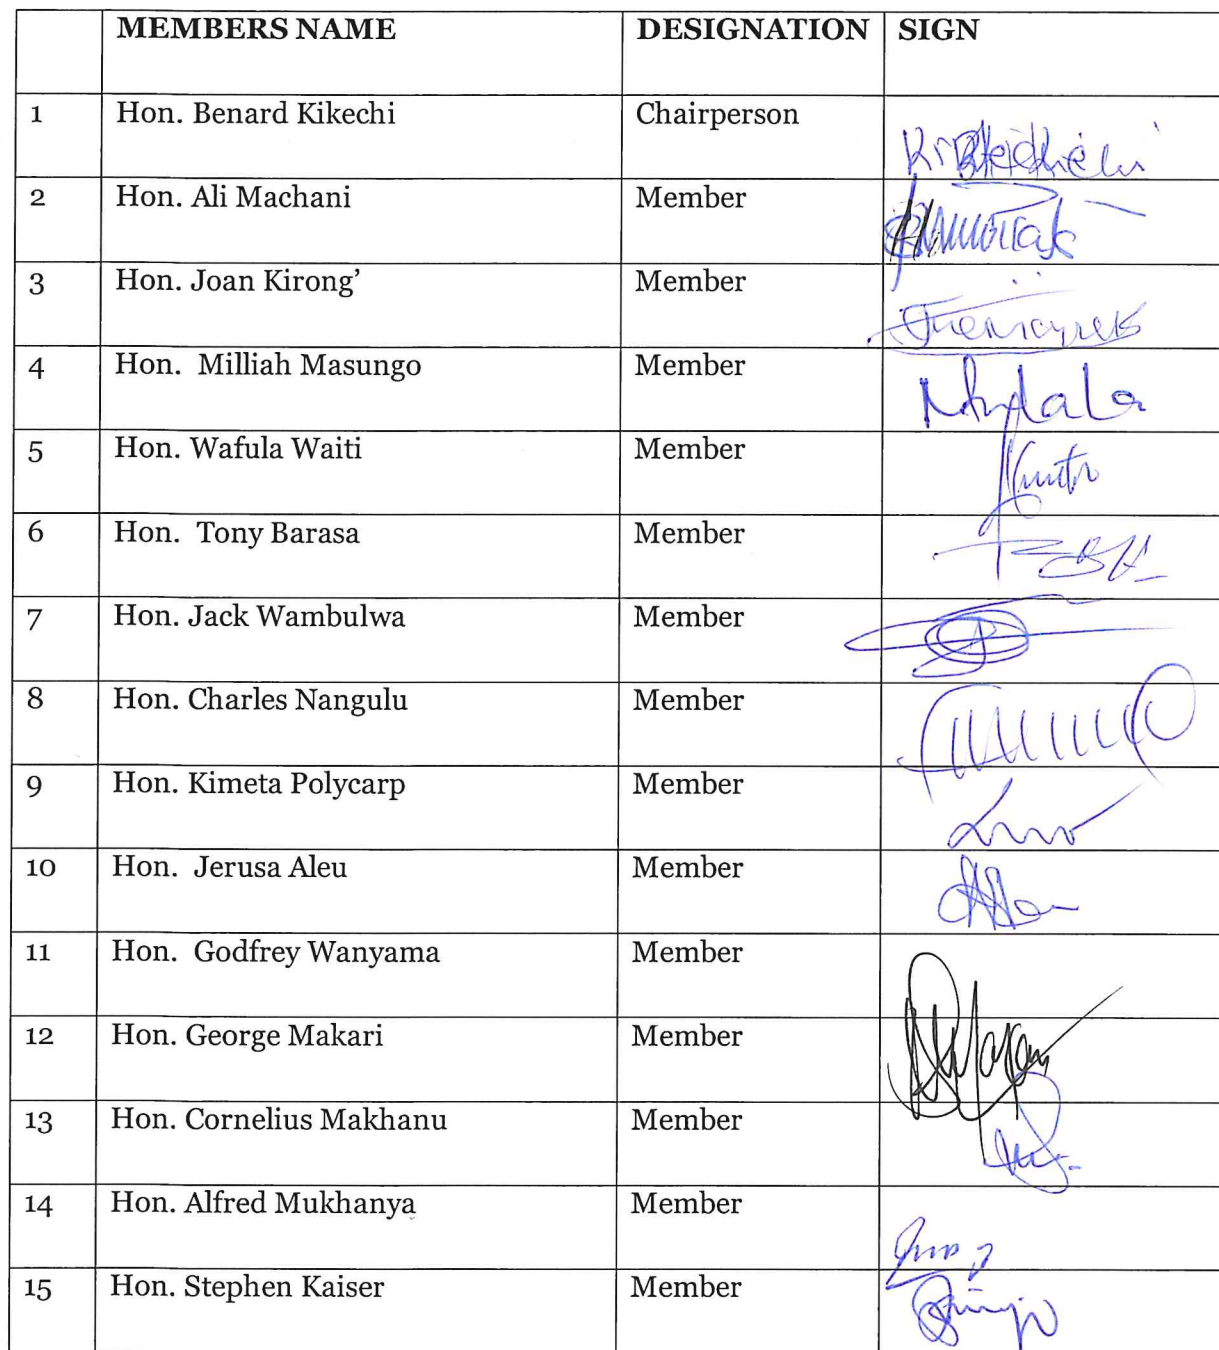 MEMBERS NAME DESIGNATION SIGN
1 Hon. Benard Kikechi Chairperson
2 Hon. Ali Machani Member
3 Hon. Joan Kirong’ Member
4 Hon. Milliah Masungo Member
5 Hon. Wafula Waiti Member
6 Hon. Tony Barasa Member
7 Hon. Jack Wambulwa Member
8 Hon. Charles Nangulu Member
9 Hon. Kimeta Polycarp Member
10 Hon. Jerusa Aleu Member
11 Hon. Godfrey Wanyama Member
12 Hon. George Makari Member
13 Hon. Cornelius Makhanu Member
14 Hon. Alfred Mukhanya Member
15 Hon. Stephen Kaiser Member